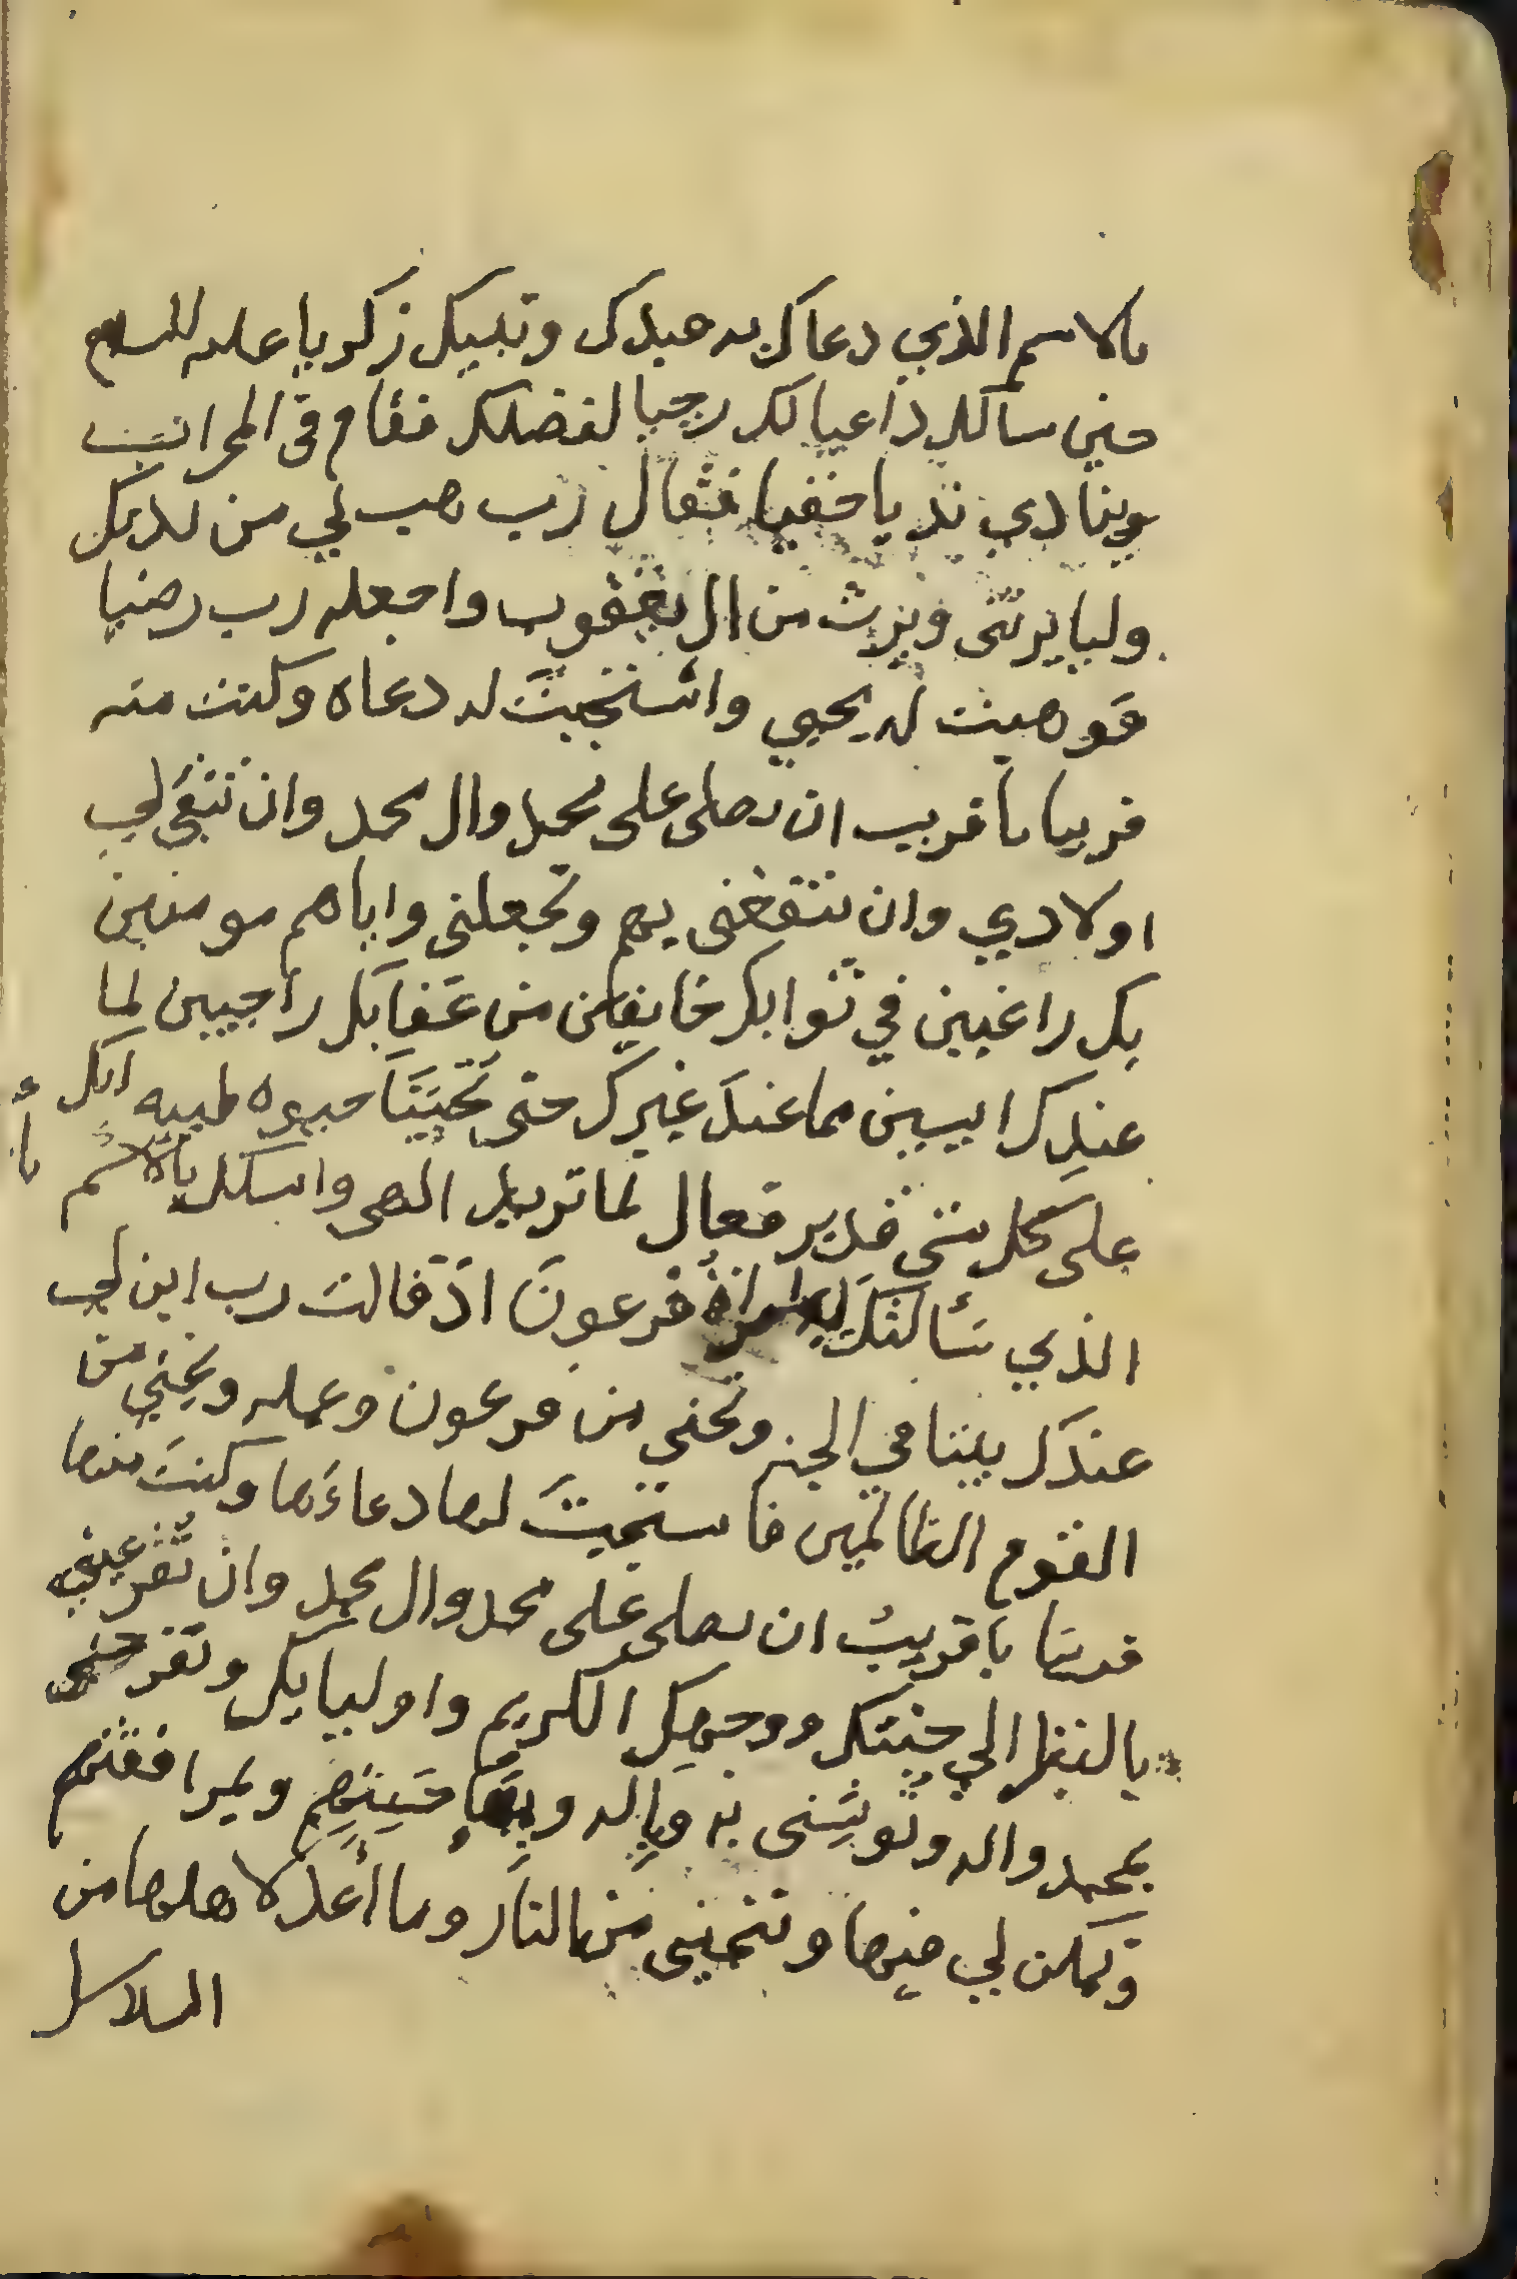 بالاسم الذي دعاك به عبدك ونبيك زكريا عليه السلام
حين سالك داعيا لك رجيا لفضلك فقام في المحراب
وينادي نديا خفيا فقال رب هب لي من لدنك
وليا يرثني ويرث من ال يعقوب واجعله رب رضيا
فوهبت له يحيي واستجبت له دعاه وكنت منه
قريبا يا قريب ان تصلي على محمد وال محمد وان تبقي لي
اولادي وان تنفعني بهم وتجعلني واياهم مومنين
بك راغبين في ثوابك خايفين من عقابك راجيين لما
عندك ايسين مما عند غيرك حتى تحيينا حيوه طيبه انك
على كل شي قدير فعال لما تريد الهي واسئلك بالاسم
الذي سألتك به امراة فرعون اذ قالت رب ابن لي
عندك بيتا في الجنه ونجني من فرعون وعمله ونجني من
القوم الظالمين فاستجبت لها دعاءها وكنت منها
قريبا يا قريب ان تصلي على محمد وال محمد وان تقر عيني
بالنظر الي جنتك ووجهك الكريم واوليايك وتفرحني
بمحمد واله وتونسني به وباله وبمصاحبتهم وبمرافقتهم
وتمكن لي فيها وتنجيني من النار وما أعد لاهلها من
السلاسل